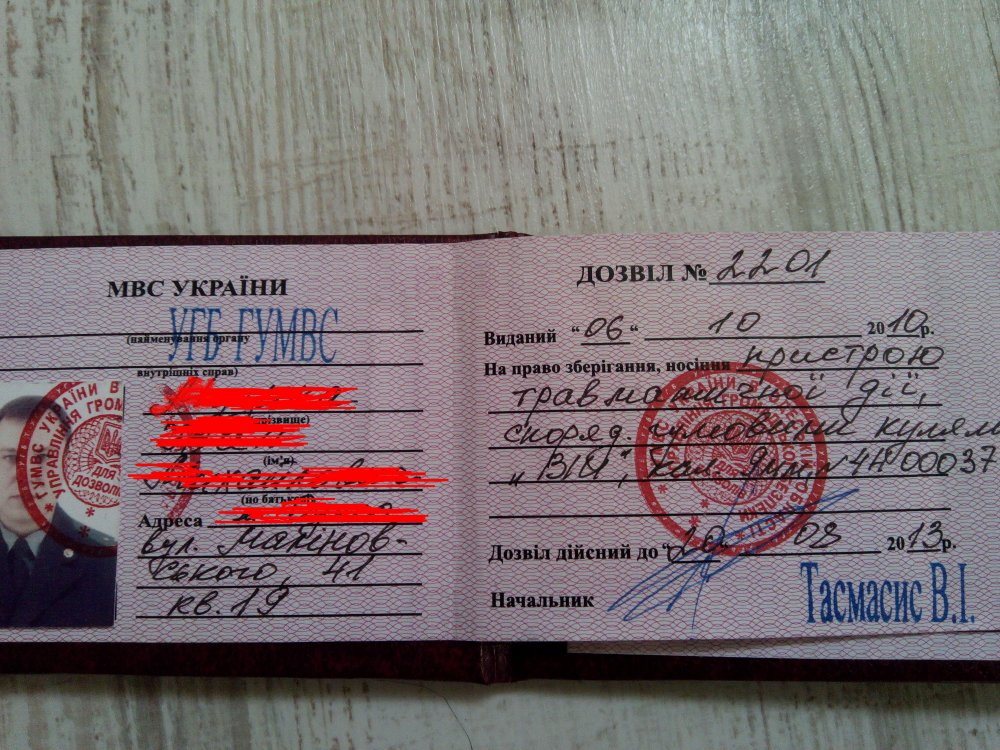 МВС УКРАЇНИ
УГБ ГУМВС
(найменування органу
внутрішніх справ)
(ім'я)
(по батькові)
Адреса
вул. Маліновського, 41
кв. 19
ГУМВС УКРАЇНИ В
УПРАВЛІННЯ ГРОМ
ДЛЯ
ДОЗВОЛ
ДОЗВІЛ № 2201
Виданий “06“ 10 2010р.
На право зберігання, носіння пристрою
травматичної дії,
споряд. гумовими кулями
кал. 9мм № 4Н00037
Дозвіл дійсний до “20 08 2013р.
Начальник
Тасмасис В.І.